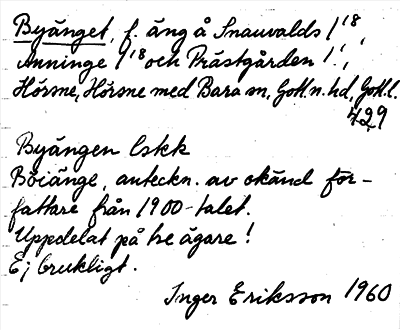 Byänget, f. äng å Snauvalds 1/18,
Anninge 1/18 och Prästgården 1/1,
Hörsne, Hörsne med Bara sn, Gotl. n. hd, Gotl. l.
429
Byängen Eskk
Böiänge, anteckn. av okänd för-
fattare från 1900-talet.
Uppdelat på tre ägare!
Ej brukligt.
Inger Eriksson 1960